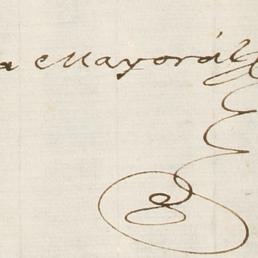 a Mayorál